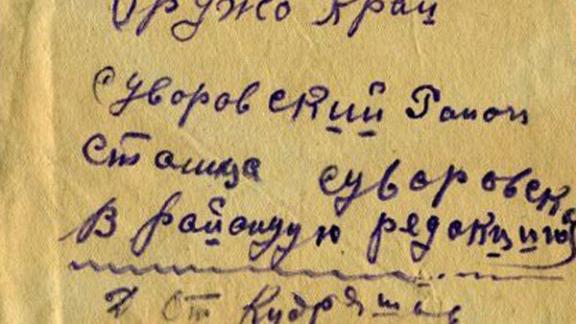 Оружо Край
Суворовский Район
Станица Суворовска
В районую редокцию
От Кудряшов